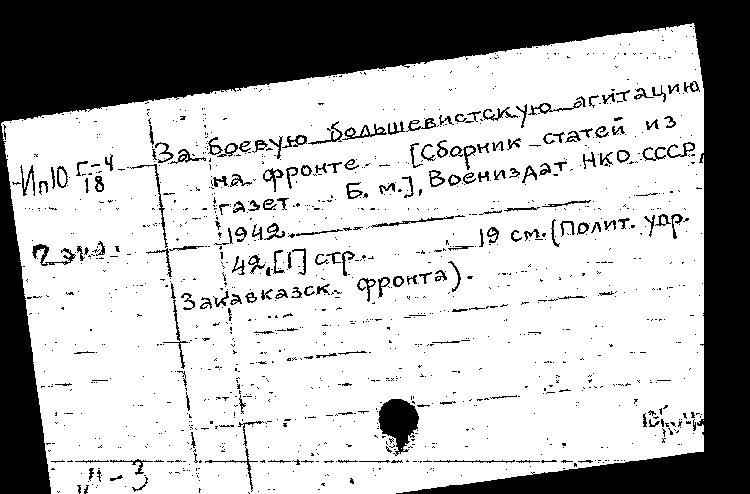 За боевую большевистскую агитацию
на фронте. [Сборник статей из
газет. Б. м.], Воениздат НКО СССР,
1942.
42,[1] стр. 19 см. (Полит. упр.
Закавказск. фронта).
Ип10 Г-4
18
2 экз.
-3